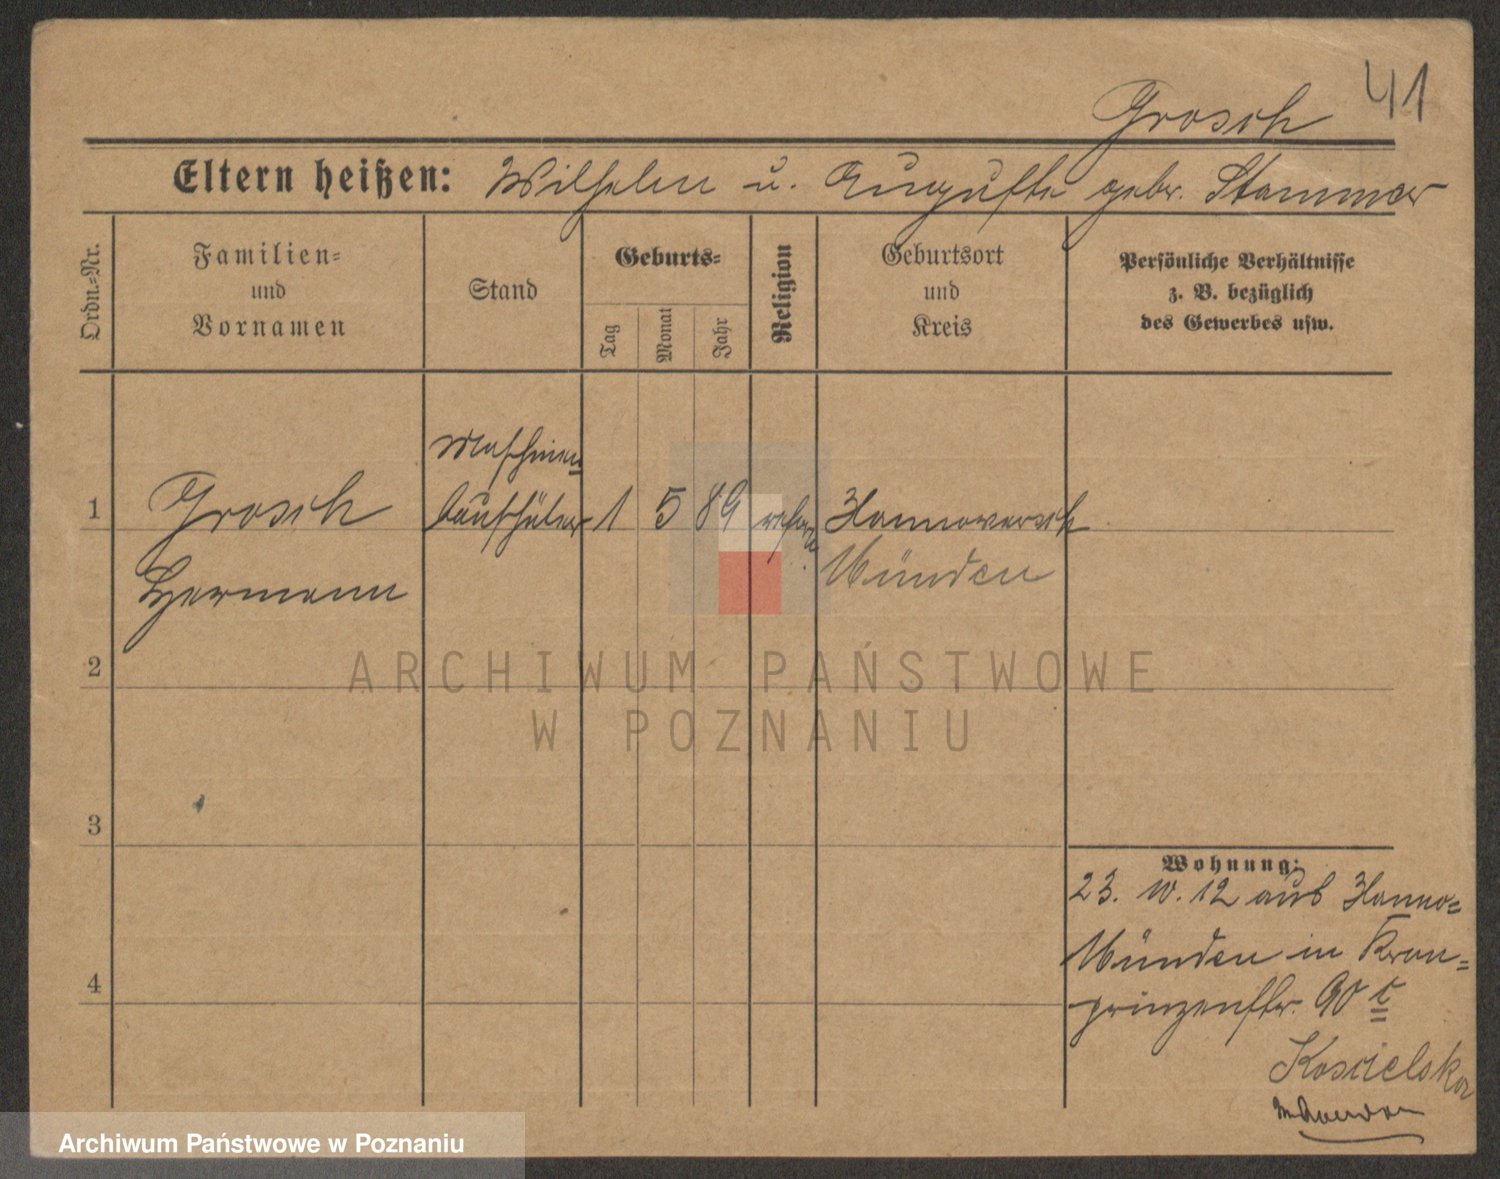 41
Grosch
Eltern heißen: Wilhelm u. Auguste gebr. Stammer
Ordn.-Nr.
Familien-
und
Vornamen
Stand
Geburts-
Tag
Monat
Jahr
Religion
Geburtsort
und
Kreis
Persönliche Verhältnisse
z. B. bezüglich
des Gewerbes usw.
1
Grosch
Hermann
Maschinen
bauschüler
1 5 89
reform.
Hannoversch
Münden
2
3
4
ARCHIWUM PAŃSTWOWE
W POZNANIU
Wohnung:
23. 10. 12 aus Hanno-
Münden in Kron-
prinzenstr. 90 c
Koscielska
Archiwum Państwowe w Poznaniu